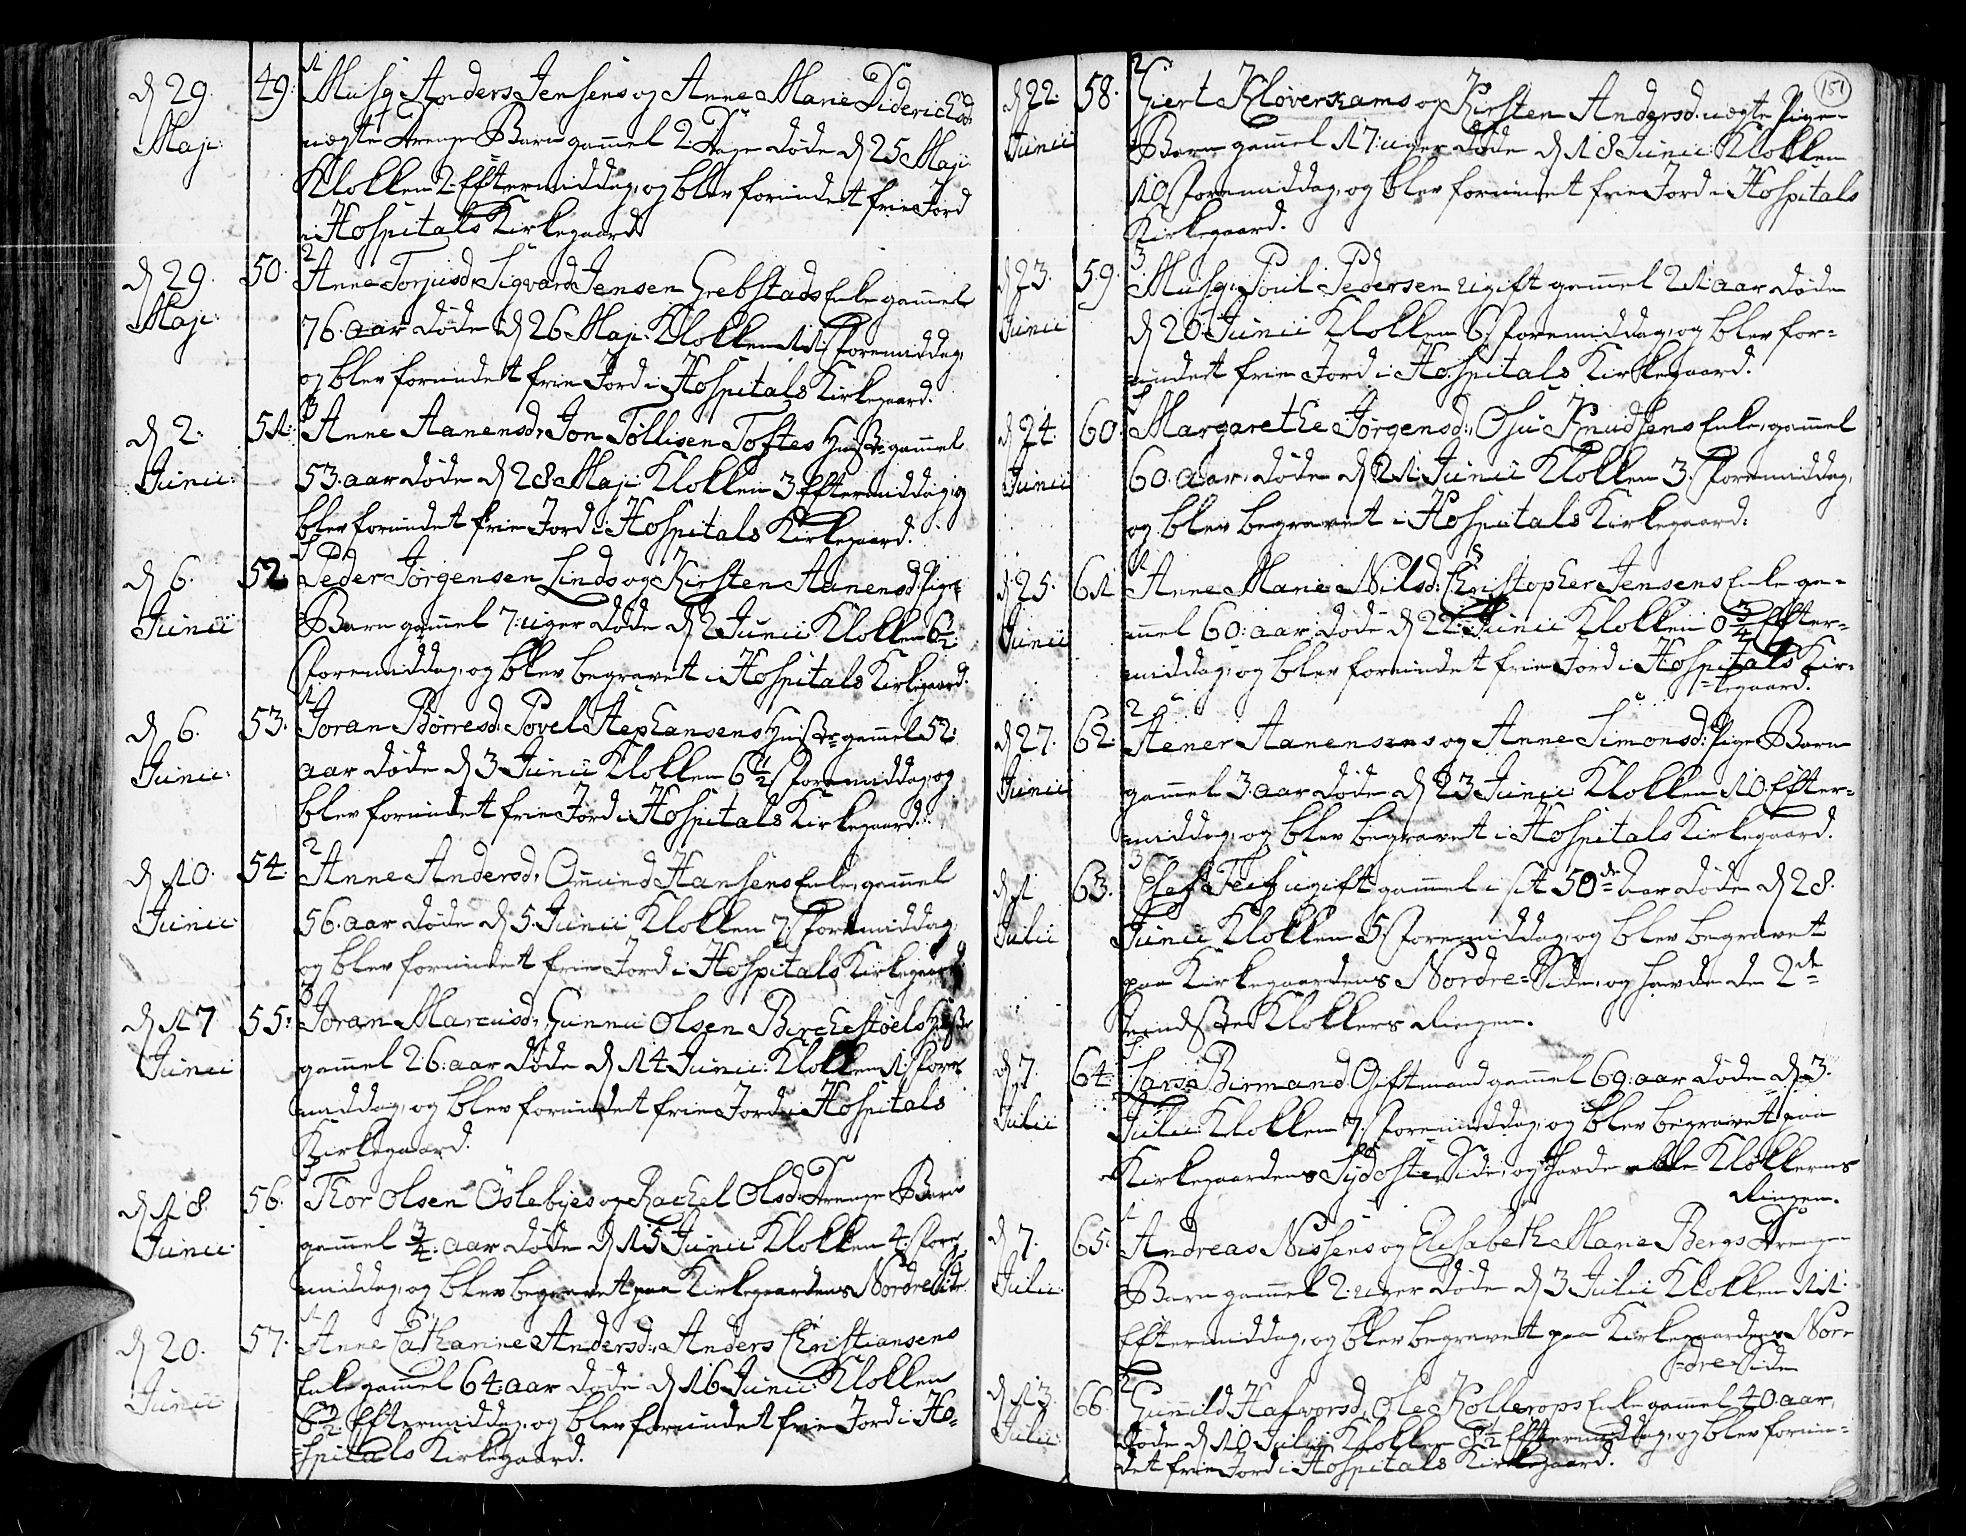 d 29. Maji
49.
1
Musq Anders Jensens og Anne Marie Diderichsd:
ægte Drenge Barn gammel 2. Dage døde d 25 Maji
Klokken 2. Eftermiddag, og blev forundet frie Jord
i Hospitals Kirkegaard.
d 29. Maji
50.
2
Anne Torjusd: Sigvard Jensen Grebstads Enke gammel
76. aar døde d 26 Maji Klokken 11. Foremiddag,
og blev forundet frie Jord i Hospitals Kirkegaard.
d 2. Junii
51.
3
Anne Aanensd: Jon Tollisen Toftes Hustr: gammel
53. aar døde d 28 Maji Klokken 3. Eftermiddag, og
blev forundet frie Jord i Hospitals Kirkegaard.
d 6. Junii
52
Peder Jørgensen Linds og Kirsten Aanensd: Pige
Barn gammel 7. uger døde d 2 Junii Klokken 6½
Foremiddag, og blev begravet i Hospitals Kirkegaard.
d 6. Junii
53.
1
Joran Børresd: Povel Stephansens Hustr: gammel 52.
aar døde d 3 Junii Klokken 6½ Foremiddag, og
blev forundet frie Jord i Hospitals Kirkegaard.
d 10. Junii
54.
2
Anne Andersd: Omund Hansens Enke, gammel
56. aar døde d 5. Junii Klokken 7. Foremiddag,
og blev forundet frie Jord i Hospitals Kirkegaard
d 17 Junii
55.
3
Joran Marcusd: Gunnu Olsen Birchestøels Hustr:
gammel 26. aar døde d 14 Junii Klokken 1. Fore-
middag, og blev forundet frie Jord i Hospitals
Kirkegaard.
d 18. Junii
56.
Thor Olsen Oslebyes og Rachel Olsd: Drenge Barn
gammel ¾. aar døde d 15 Junii Klokken 4. Fore-
middag, og blev begravet paa Kirkegaardens Nordre Side.
d 20. Junii
57.
1
Anne Catharine Andersd: Anders Christiansens
Enke gammel 64. aar døde d 16 Junii Klokken
8½ Eftermiddag, og blev forundet frie Jord i Ho-
spitals Kirkegaard.
151
d 22. Junii
58.
2
Giert Kløverkams og Kirsten Andersd: uægte Pige
Barn gammel 17. uger døde d 18 Junii Klokken
10. Foremiddag, og blev forundet frie Jord i Hospitals
Kirkegaard.
d 23. Junii
59.
3
Musq: Poul Pedersen ugift gammel 21. aar døde
d 20. Junii Klokken 6. Foremiddag, og blev for-
undet frie Jord i Hospitals Kirkegaard.
d 24. Junii
60.
Margarethe Jørgensd: Osu Knudsens Enke, gammel
60. aar, døde d 21. Junii Klokken 3. Foremiddag,
og blev begravet i Hospitals Kirkegaard.
d 25. Junii
61
1
Anne Marie Nilsd: Christopher Jensens Enke ga-
mmel 60. aar døde d 22. Junii Klokken 0¾ Efter-
middag, og blev forundet frie Jord i Hospitals Kir-
kegaard.
d 27. Junii
62.
2
Stener Aanensens og Anne Simonsd: Pige Barn
gammel 3. aar døde d 23 Junii Klokken 10. Efter-
middag, og blev begravet i Hospitals Kirkegaard.
d 1 Julii
63.
3
ugift gammel i sit 50de Aar døde d 28.
Junii Klokken 5. Foremiddag, og blev begravet
paa Kirkegaardens Nordre-Side, og havde de 2de
mindste Klokkers Ringen.
d 7. Julii
64.
Lars Birmand Giftmand gammel 69. aar døde d 3.
Julii Klokken 7. Foremiddag, og blev begravet paa
Kirkegaardens Sydoste Side, og havde alle Klokkernes
Ringen.
d 7. Julii
65.
1
Andreas Nissens og Elisabeth Marie Bergs Drenge
Barn gammel 2. uger døde d 3 Julii Klokken 11.
Eftermiddag, og blev begravet paa Kirkegaardens Nor-
dre Side
d 13 Julii
66.
2
Gunnild Halvorsd: Ole Kollerops Enke gammel 40. aar,
døde d 10 Julii Klokken 8½ Eftermiddag, og blev forun-
det frie Jord i Hospitals Kirkegaard.